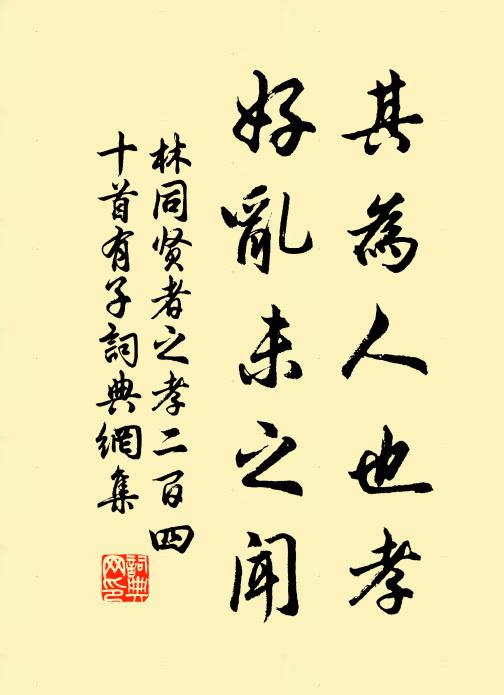 其為人也孝
好亂未之闻
林同贤者之孝二百四
十首有子詞典網集
詞典
网印